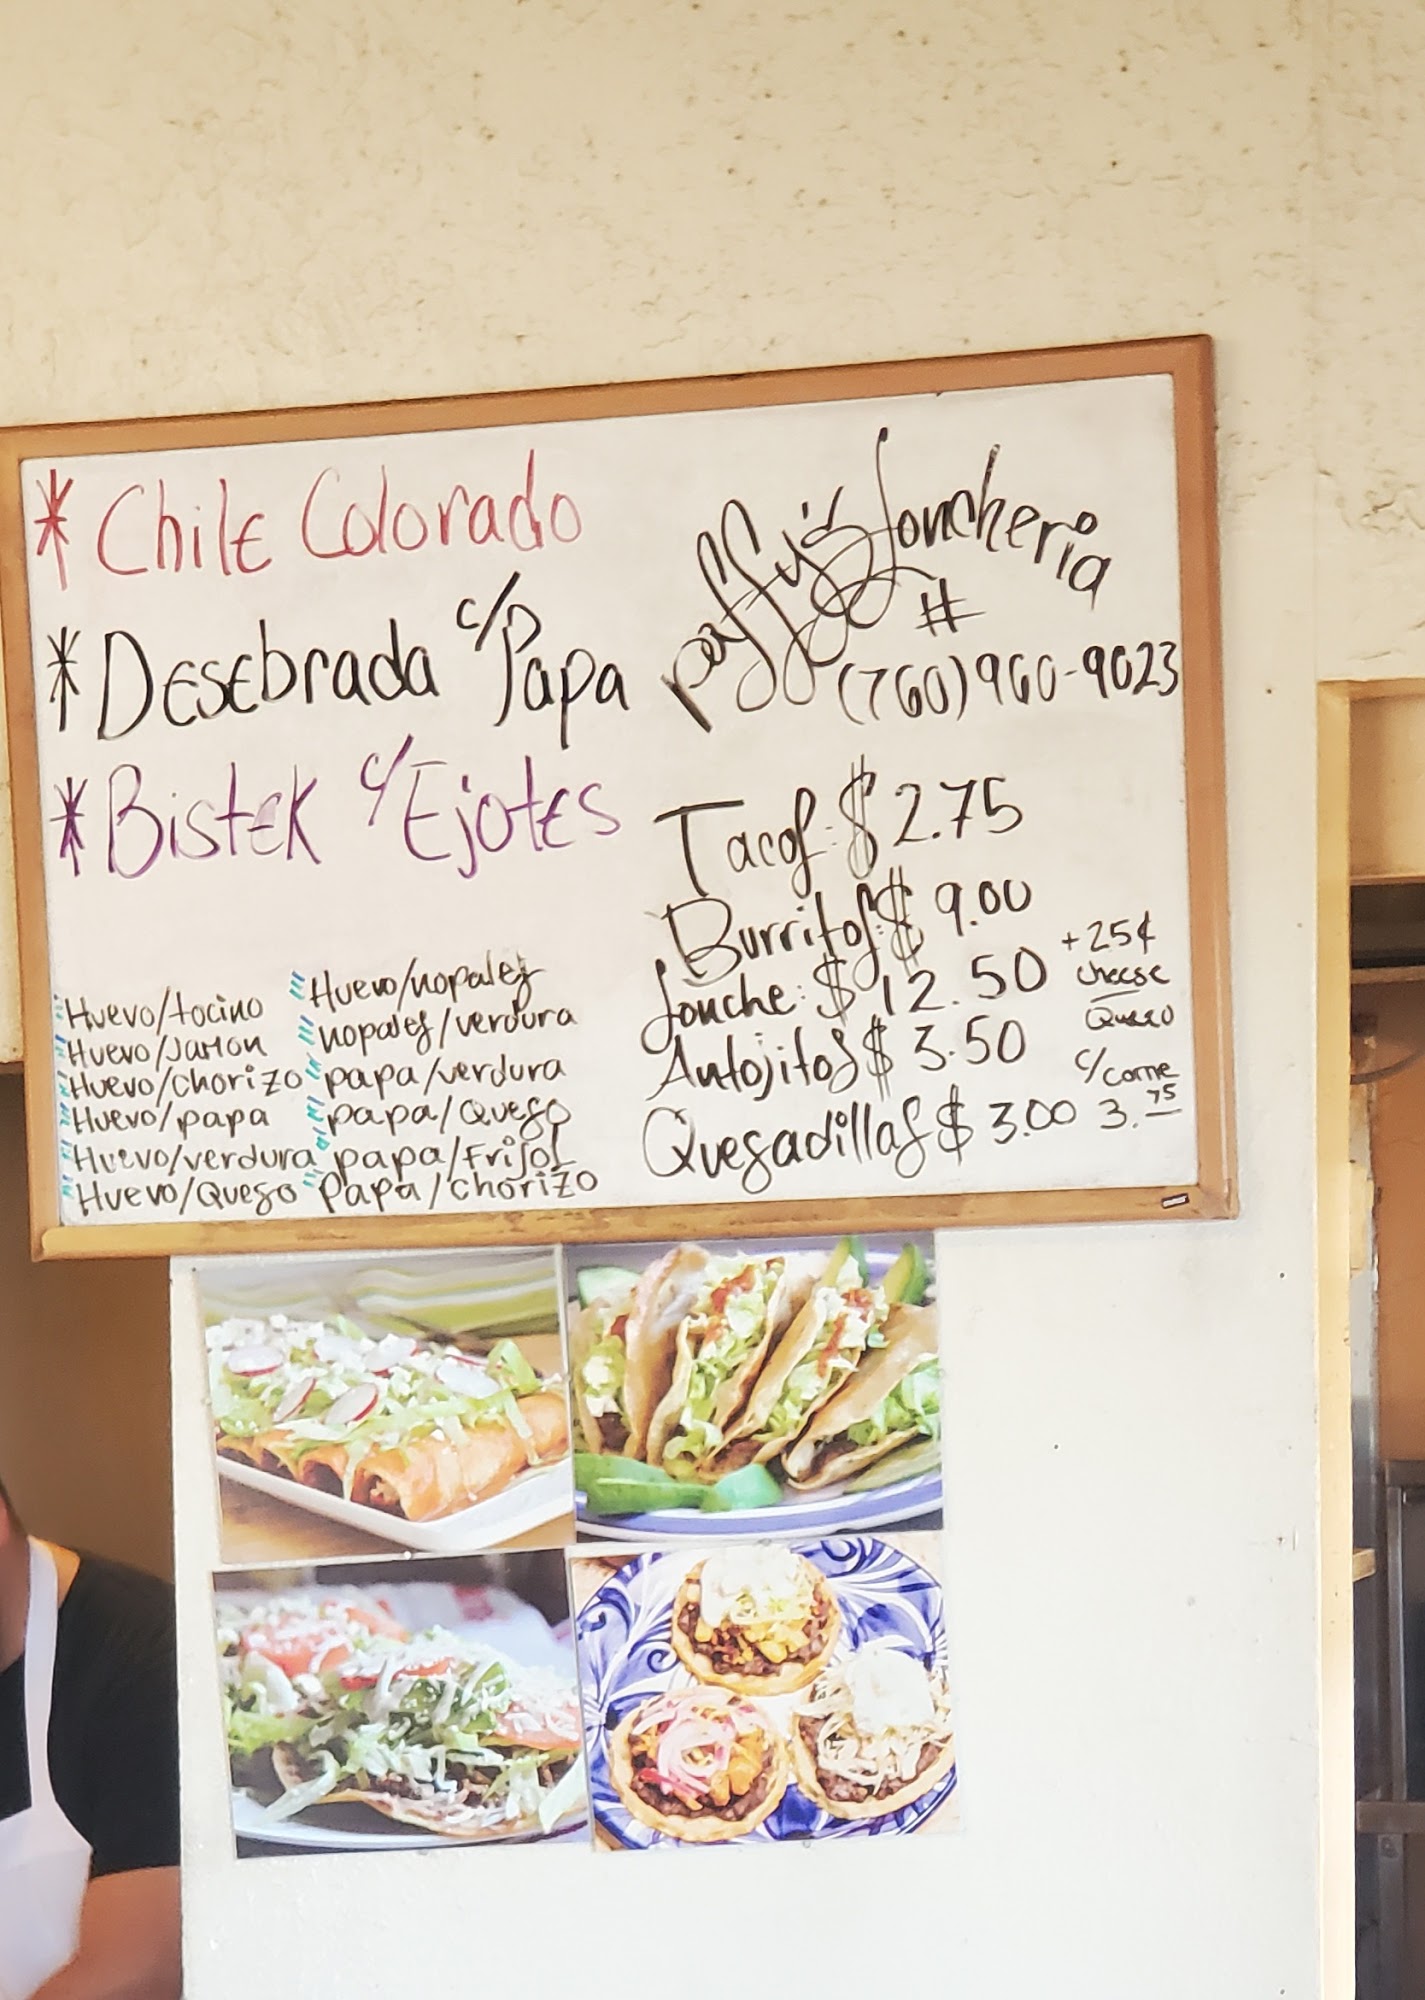 * Chile Colorado
* Desebrada c/Papa
* Bistek c/Ejotes
Huevo/tocino
Huevo/Jamon
Huevo/chorizo
Huevo/papa
Huevo/verdura
Huevo/Queso
Huevo/nopales
nopales/verdura
papa/verdura
papa/Queso
papa/Frijol
Papa/chorizo
paffy's lonchería
#
(760)960-9023
Tacos: $2.75
Burritos: $9.00
lonche: $12.50
Antojitos $3.50
Quesadillas $3.00
+25¢
cheese
Queso
c/carne
3.75